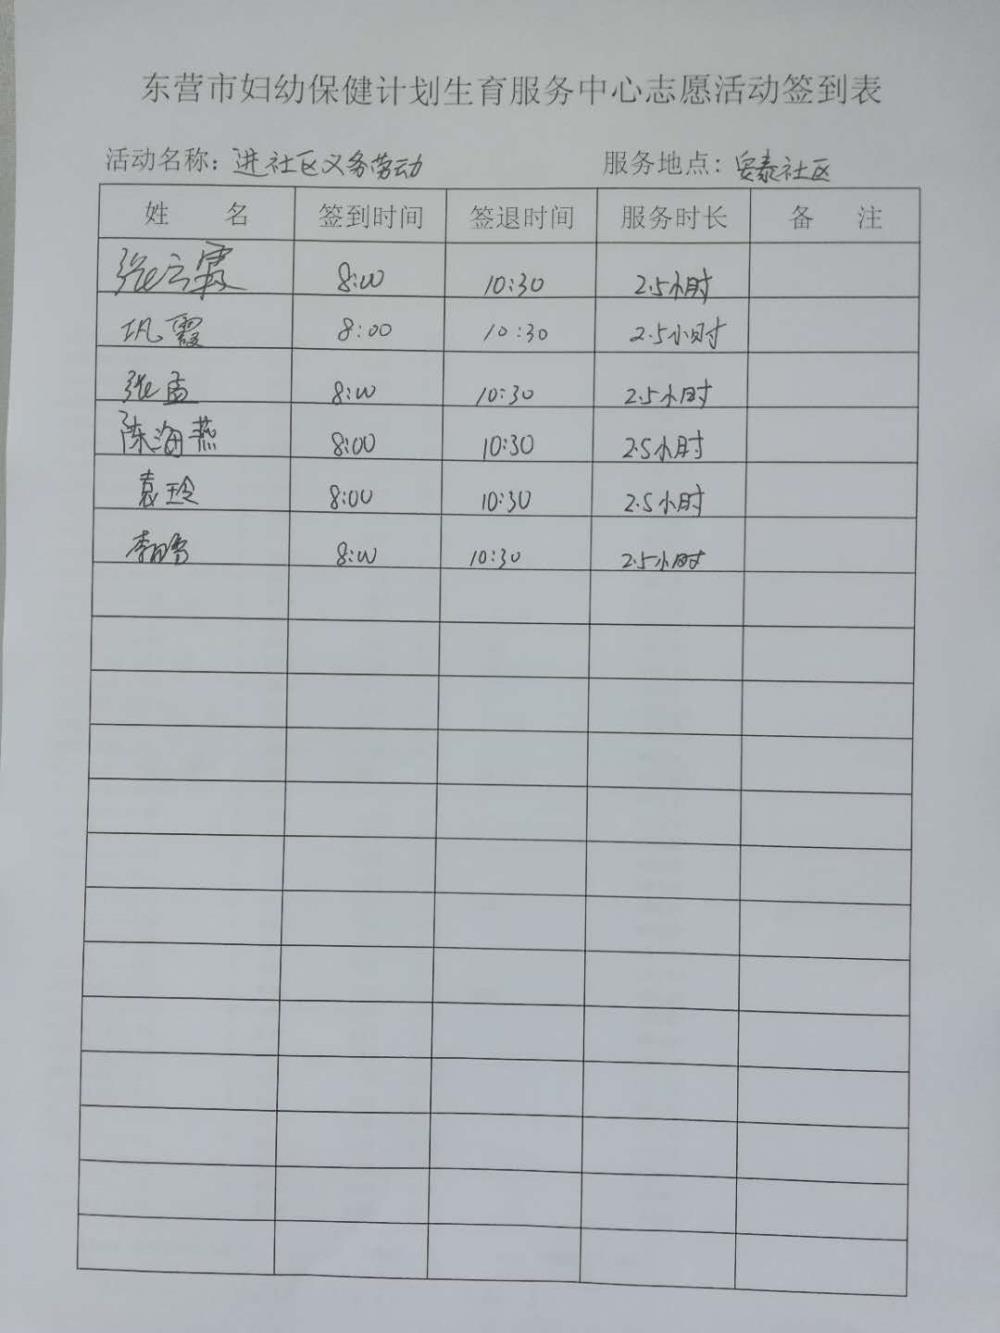 东营市妇幼保健计划生育服务中心志愿活动签到表
活动名称：进社区义务劳动 服务地点：安泰社区
姓 名 签到时间 签退时间 服务时长 备 注
张云霞 8:00 10:30 2.5小时
巩霞 8:00 10:30 2.5小时
张孟 8:00 10:30 2.5小时
陈海燕 8:00 10:30 2.5小时
袁玲 8:00 10:30 2.5小时
李 8:00 10:30 2.5小时